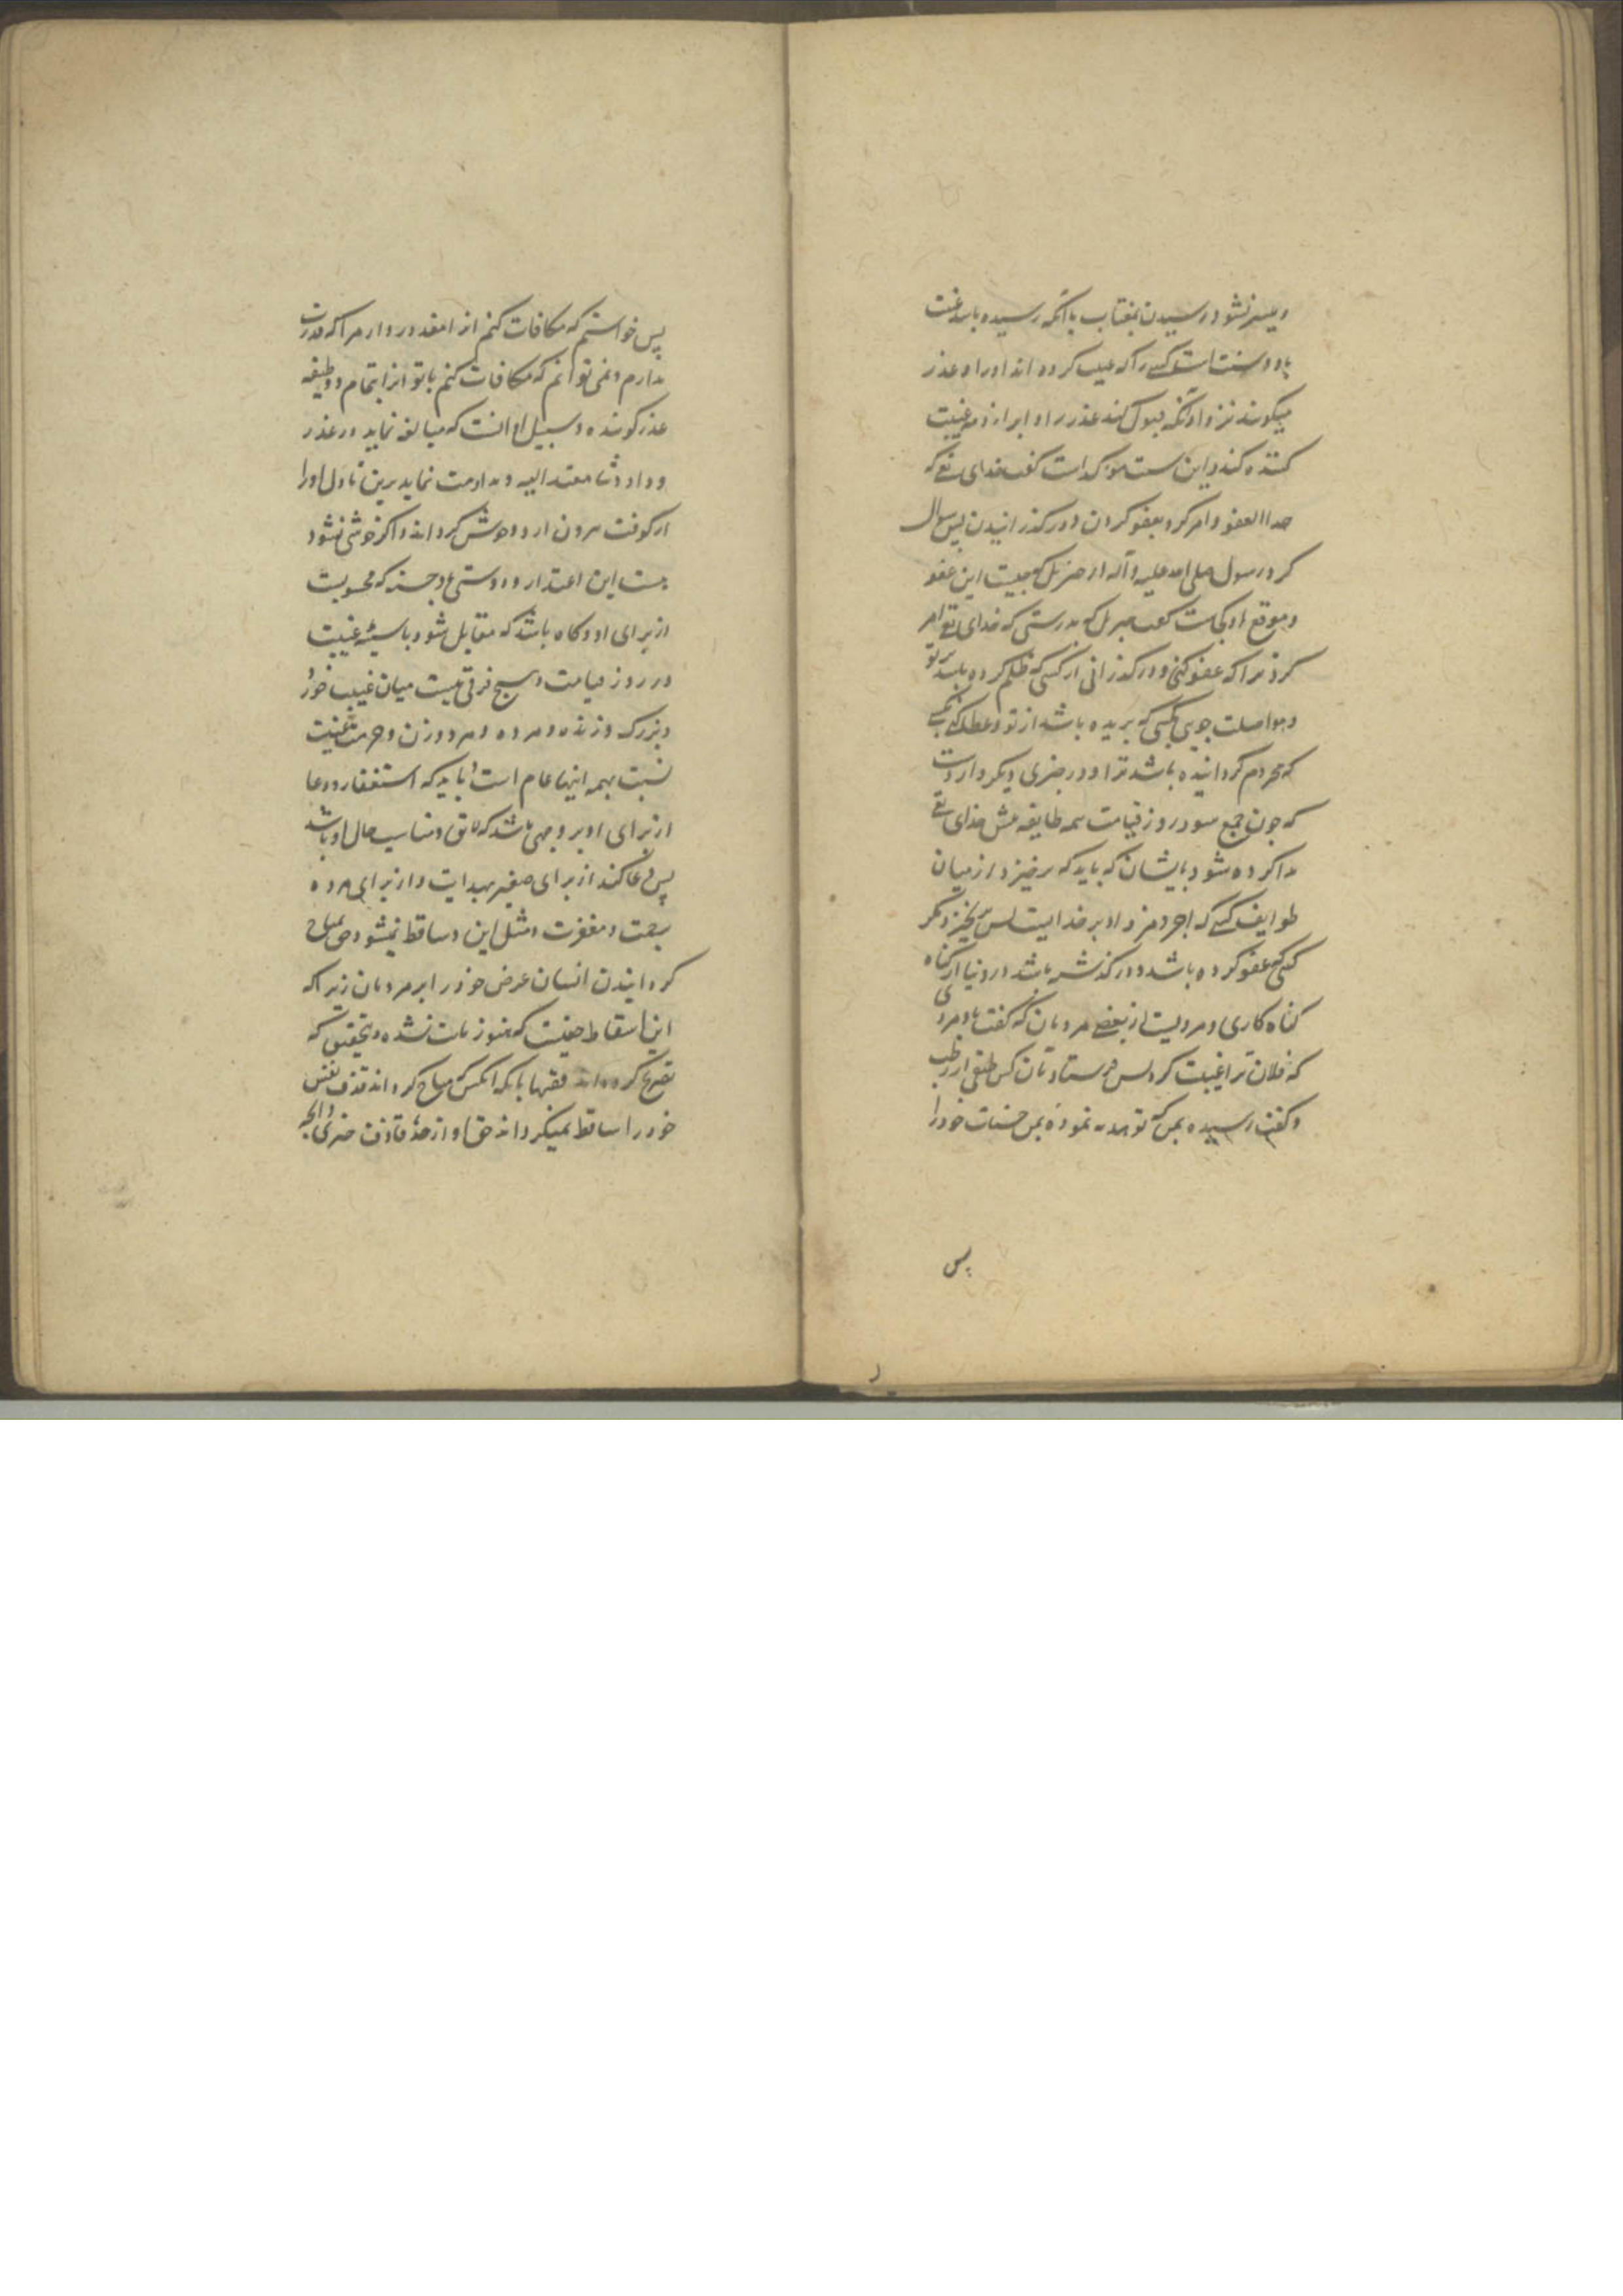 و میسر نشود رسیدن بمغتاب یا آنکه رسیده باشد غیبت
باو و سنت است کسی را که غیبت کرده اند او را و عذر
میگویند نزد او آنکه قبول کند عذر را و ابراء ذمه غیبت
کننده کند و این سنت موکد است گفت خدای تع که
خذ العفو و امر کرد بعفو کردن و درگذرانیدن پس سوال
کرد رسول صلی الله علیه و آله از جبرئیل که چیست این عفو
و موقع او کجاست گفت جبرئیل که بدرستی که خدای تع امر
کرد ترا که عفو کنی و درگذرانی از کسی که ظلم کرده باشد بر تو
و مواصلت جویی بکسی که بریده باشد از تو و عطا کنی بکسی
که محروم گردانیده باشد ترا و در خبری دیگر وارد است
که چون جمع شود در روز قیامت همه طایفه پیش خدای تع
ندا کرده شود بایشان که باید که برخیزد از میان
طوایف کسی که اجر و مزد او بر خداست پس برنخیزد مگر
کسی که عفو کرده باشد و درگذشته باشد در دنیا از گناه
گناه کاری و مرویست از بعضی مردمان که گفت باو مردی
که فلان ترا غیبت کرد پس فرستاد بآن کس طبقی از رطب
و گفت رسیده بمن که تو هدیه نموده بمن حسنات خود را
پس
پس خواستم که مکافات کنم از آنمقدور دارم را که قدرت
ندارم و نمی توانم که مکافات کنم با تو از اتمام و وظیفه
عذر گوینده و سبیل او آنست که مبالغه نماید در عذر
و داد و ثنا معتذر الیه و مداومت نماید برین تا دل او را
از کوفت بیرون آرد و خوش گرداند و اگر خوش نشود
هست این اعتذار و دوستی او حسنه که محسوبست
از برای او و گاه باشد که مقابل شود با سیئه غیبت
در روز قیامت و هیچ فرقی نیست میان غیبت خورد
و بزرگ و زنده و مرده و مرد و زن و حرمت غیبت
نسبت بهمه اینها عام است و باید که استغفار و دعا
از برای او بر وجهی باشد که لایق و مناسب حال او باشد
پس دعا کند از برای صغیر بهدایت و از برای مرده
برحمت و مغفرت و مثل این و ساقط نمیشود حق بمباح
گردانیدن انسان عرض خود را بر مردمان زیرا که
این اسقاط حقیست که هنوز ثابت نشده و بتحقیق که
تصریح کرده اند فقها بآنکه آنکس مباح گرداند قذف نفس
خود را ساقط نمیگرداند حق او از حد قاذف چیزی و آنچه